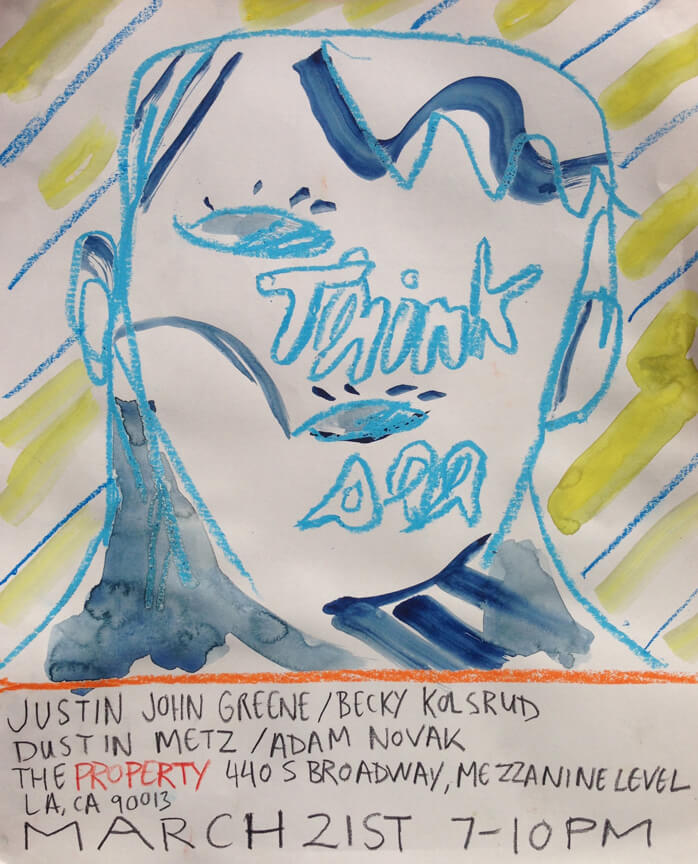 Think
JUSTIN JOHN GREENE/BECKY KOLSRUD
DUSTIN METZ/ADAM NOVAK
THE PROPERTY 440 S BROADWAY, MEZZANINE LEVEL
LA, CA 90013
MARCH 21ST 7-10PM